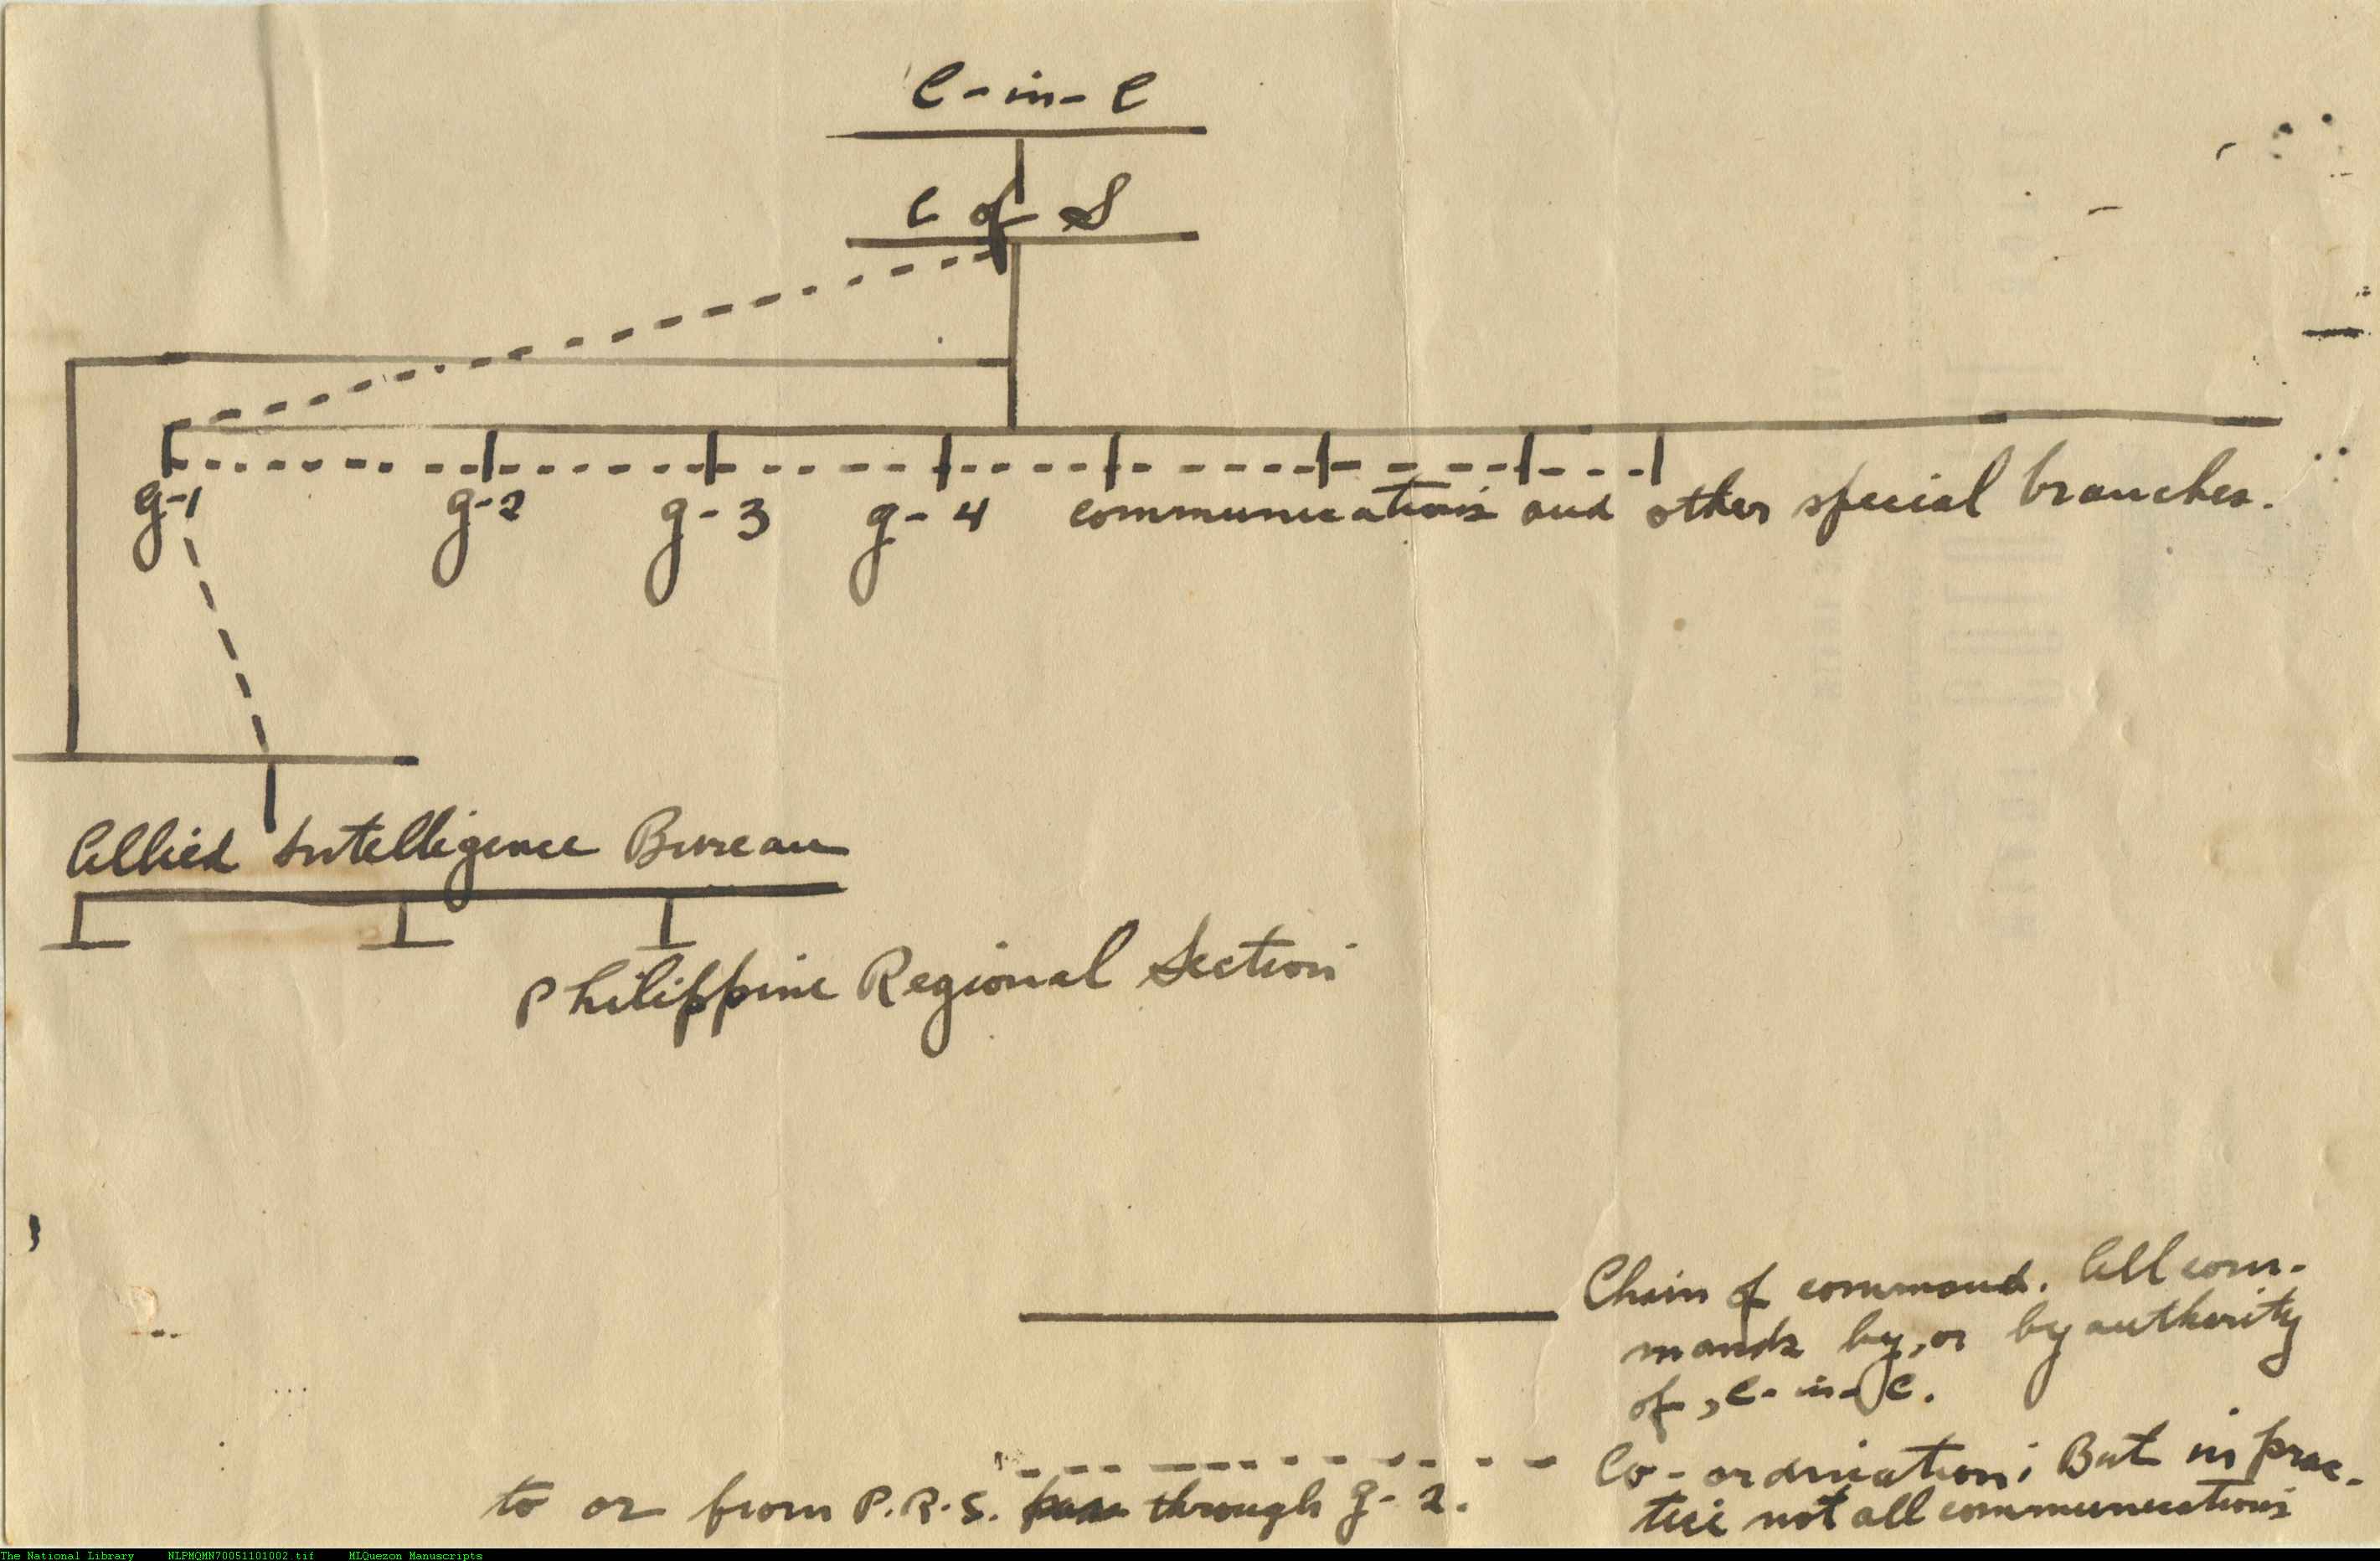 C-in-C
C of S
g-1 g-2 g-3 g-4 communications and other special branches.
Allied Intelligence Bureau
Philippine Regional Section
Chain of command. All com-
mands by, or by authority
of, C-in-C.
Co-ordination; But in prac-
tice not all communications
to or from P.R.S. pass through g-2.
The National Library NLPMQMN70051101002.tif MLQuezon Manuscripts